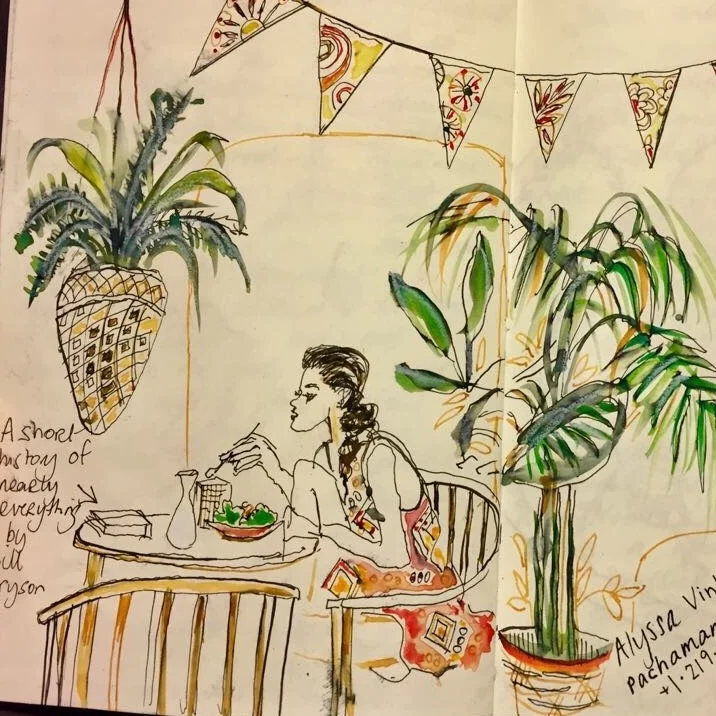 A short
history of
nearly
everything
by
ill
ryson
Alyssa Vin
pachamam
+1.219.